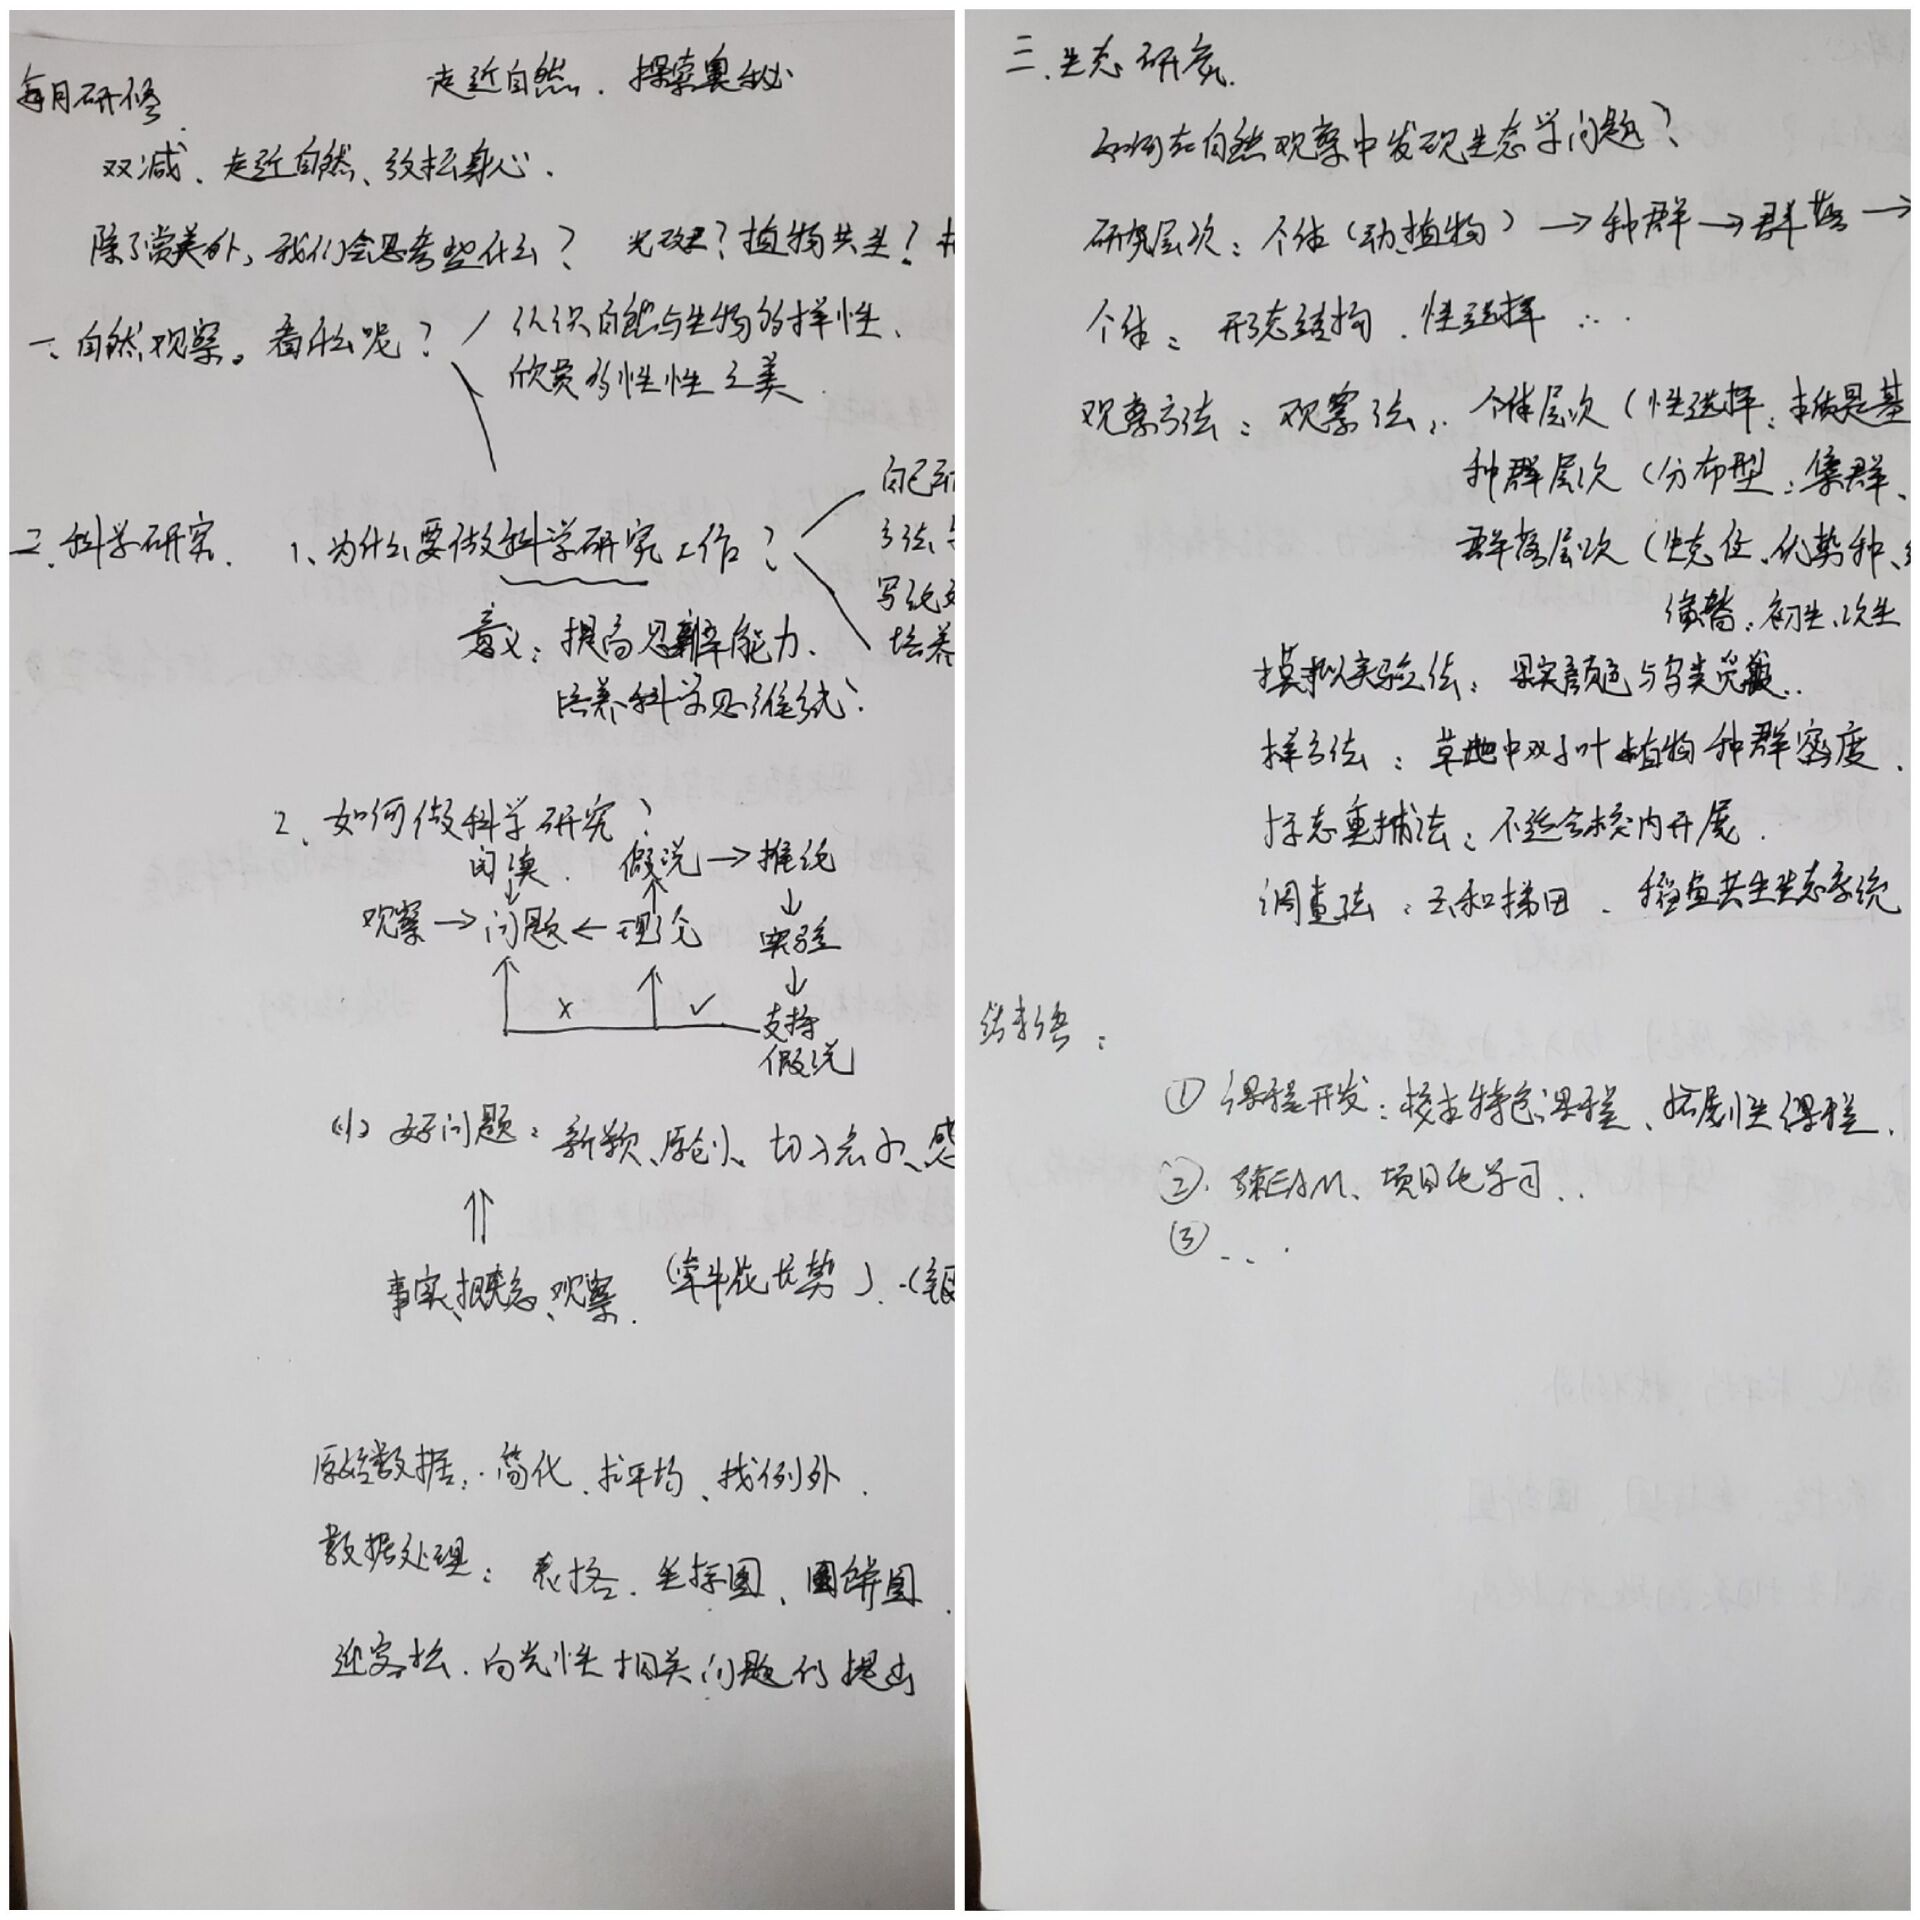 走近自然．探索奥秘
每月研修
双减、走近自然、放松身心．
除了赏美外，我们会思考些什么？ 光斑？植物共生？
一、自然观察。看什么呢？
认识自然与生物多样性、
欣赏多样性之美．
二、科学研究． 1、为什么要做科学研究工作？
自己
方法、
写论文
培养
意义：提高思辨能力、
培养科学思维
2、如何做科学研究？
阅读． 假说→推论
观察→问题←理论 ↓
实验
↓
× ✓ 支持
假说
(1) 好问题：新颖、原创、切入点小、感
⇑
事实、概念、观察．（牵牛花长势）．（银
原始数据：简化、求平均、找例外．
数据处理：表格、坐标图、圆饼图．
迎客松．向光性相关问题的提出
三、生态研究．
如何在自然观察中发现生态学问题？
研究层次：个体（动、植物）→种群→群落→
个体：形态结构．性选择…
观察方法：观察法：个体层次（性选择：本质是基
种群层次（分布型：集群、
群落层次（生态位、优势种、
演替：初生、次生
模拟实验法：果实颜色与鸟类觅食．
样方法：草地中双子叶植物种群密度．
标志重捕法：不适合校内开展．
调查法：云和梯田．稻鱼共生生态系统
结束语：
① 课程开发：校本特色课程、拓展性课程．
② STEAM、项目化学习．
③ …